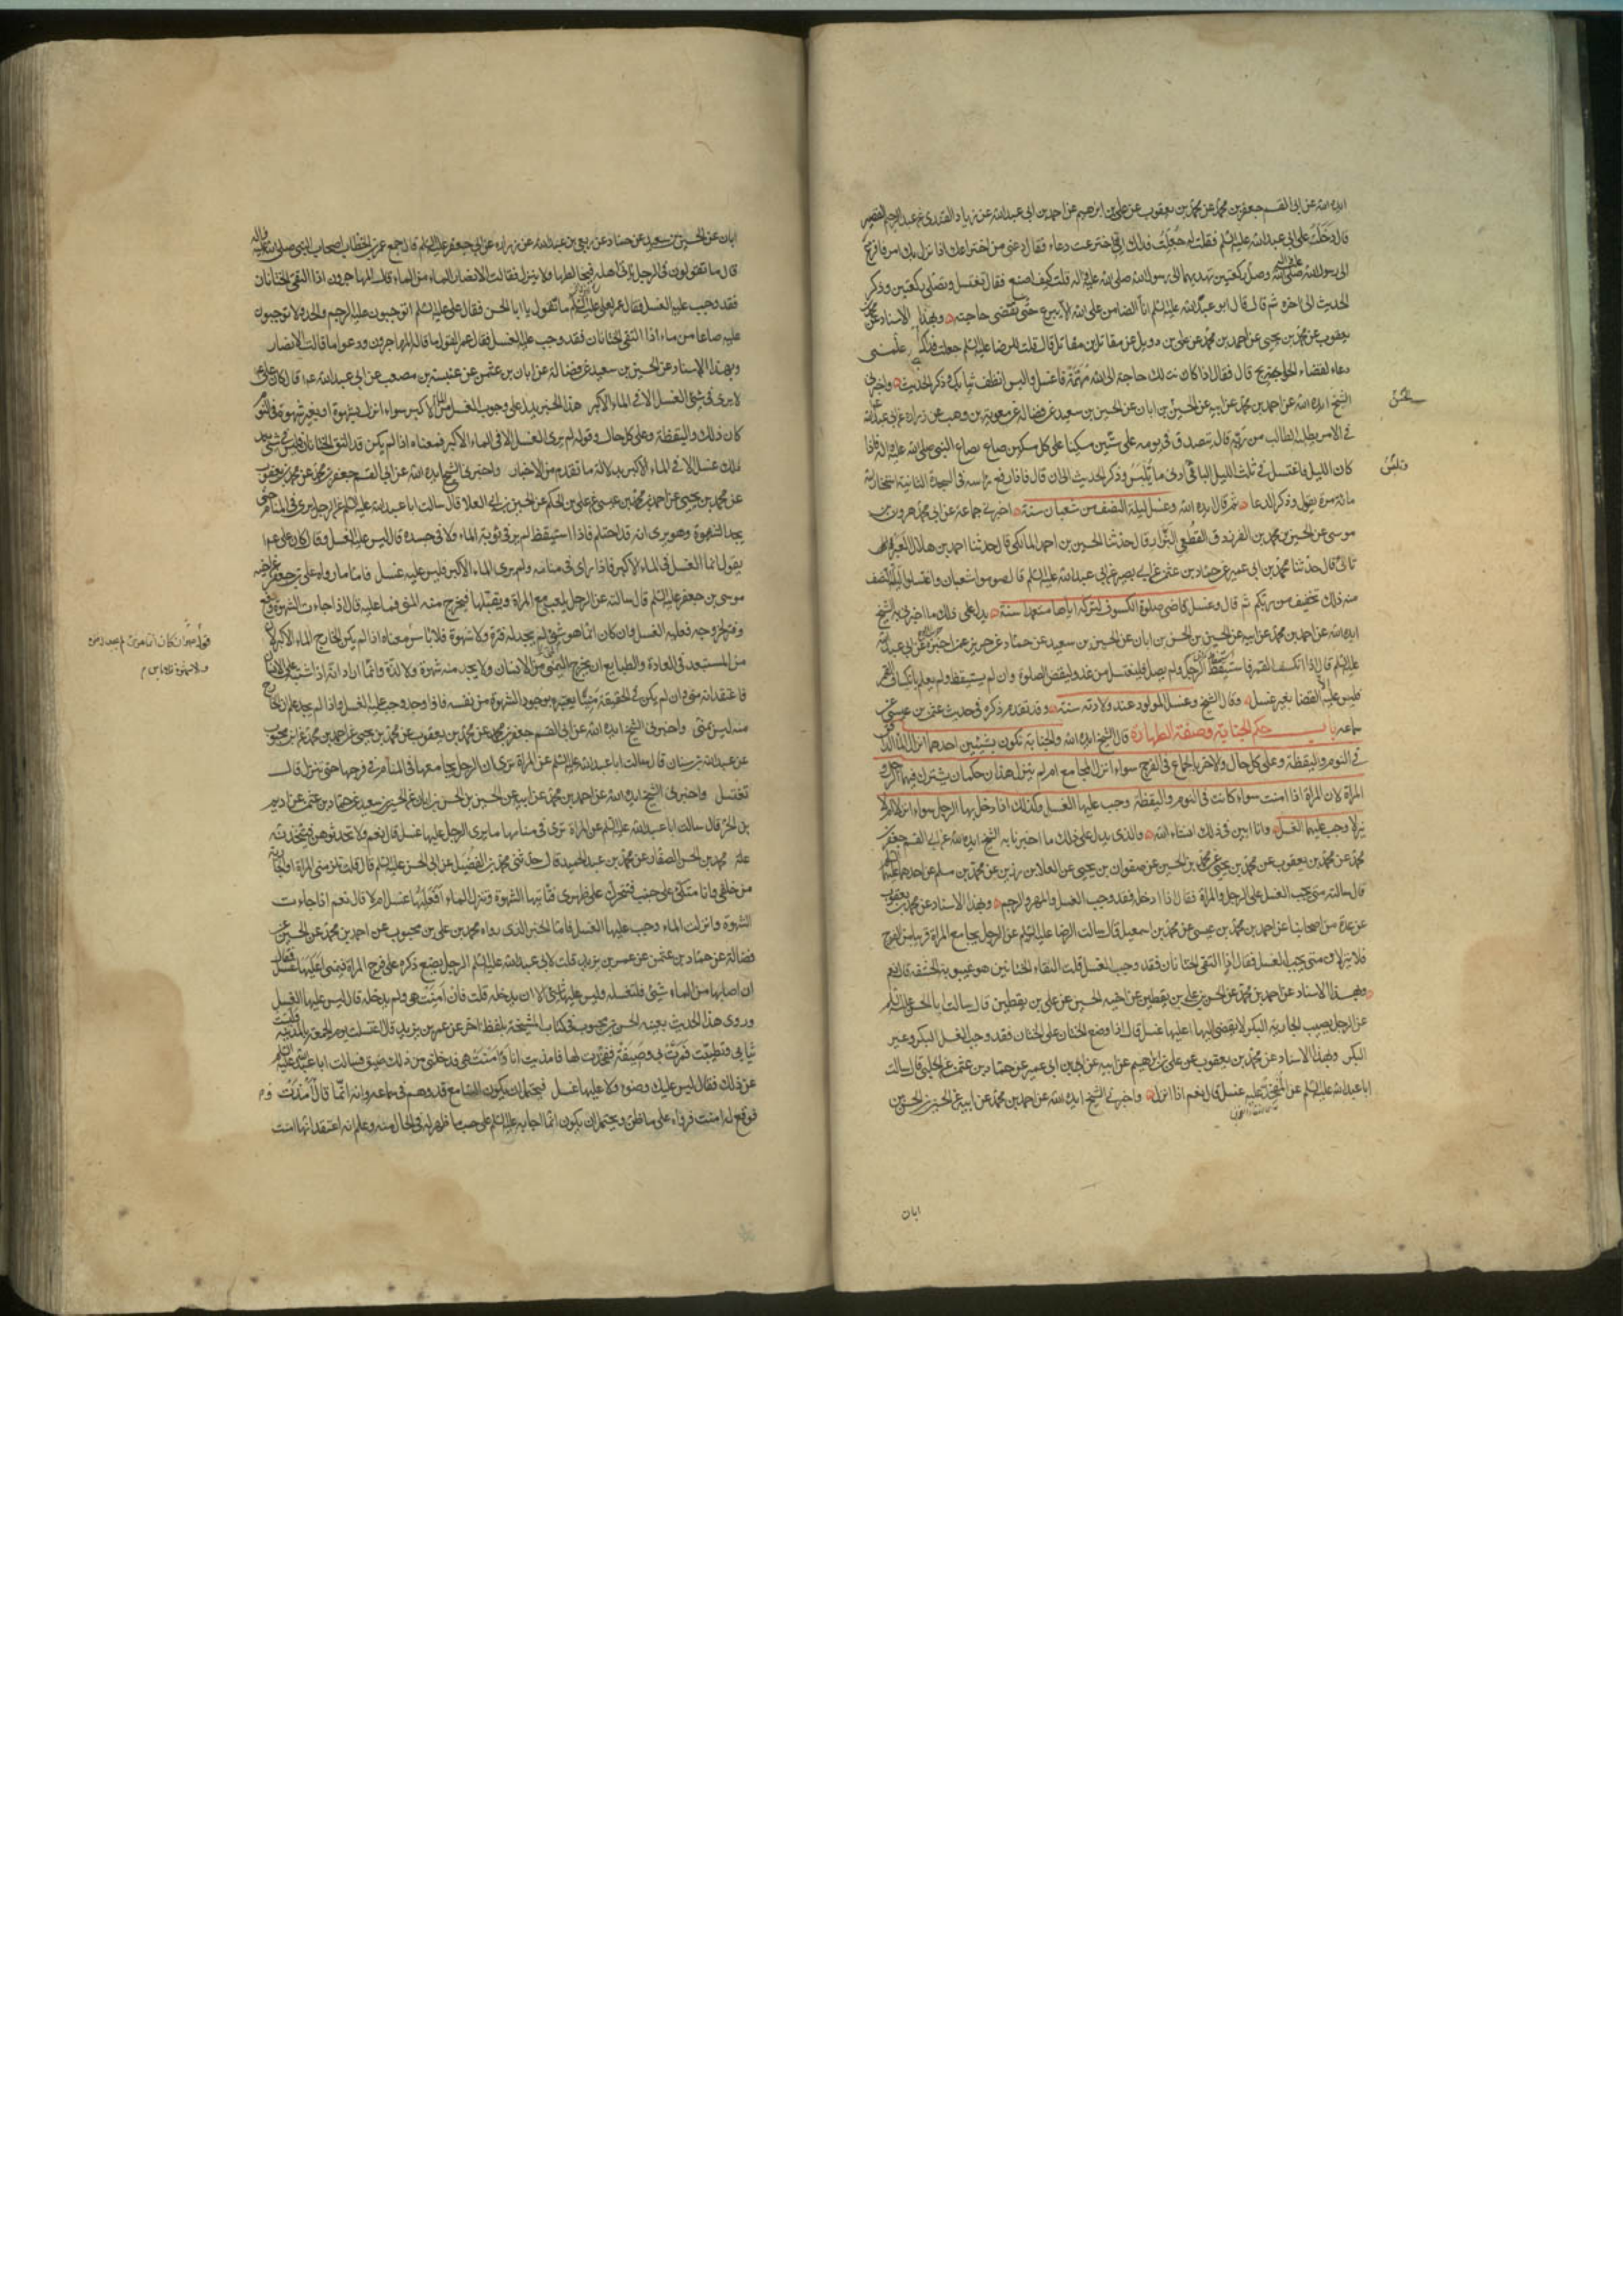 ايده الله عن ابى القسم جعفر بن محمد عن محمد بن يعقوب عن على بن ابرهيم عن احمد بن ابى عبد الله عن زياد القندى عن عبد الرحيم القصير
قال دخلت على ابى عبد الله عليه السلم فقلت له جعلت فداك انى اخترعت دعاء فقال دعنى من اختراعك اذا نزل بك امر فافزع
الى رسول الله صلى الله عليه واله وصل ركعتين تهديهما الى رسول الله صلى الله عليه واله قلت كيف اصنع فقال تغتسل وتصلى ركعتين وذكر
الحديث الى اخره ثم قال قال ابو عبد الله عليه السلم انا الضامن على الله الا يبرح حتى تقضى حاجته وبهذا الاسناد عن محمد بن
يعقوب عن محمد بن يحيى عن احمد بن محمد عن على بن دويل عن مقاتل بن مقاتل قال قلت للرضا عليه السلم جعلت فداك علمنى
دعاء لقضاء الحوايج قال فقال اذا كانت لك حاجة الى الله مهمة فاغتسل والبس انظف ثيابك وذكر الحديث واخبرنى
الشيخ ايده الله عن احمد بن محمد عن ابيه عن الحسين بن الحسن بن ابان عن الحسين بن سعيد عن فضالة عن معوية بن وهب عن زرارة عن ابى عبد الله
فى الامر يطلبه الطالب من ربه قال تصدق فى يومه على ستين مسكينا على كل مسكين صاع بصاع النبى صلى الله عليه واله فاذا
كان الليل فاغتسل فى ثلث الليل الباقى ادنى ما تلبس وذكر الحديث الى ان قال فاذا رفع راسه فى السجدة الثانية استخار الله
مائة مرة يقول وذكر الدعا ثم قال ايده الله وغسل ليلة النصف من شعبان سنة اخبرنى جماعة عن ابى محمد هرون بن
موسى عن الحسين بن محمد بن الفرزدق القطعى البزاز قال حدثنا الحسين بن احمد المالكى قال حدثنا احمد بن هلال العبرتائى
قال حدثنا محمد بن ابى عمير عن حماد بن عثمن عن ابى بصير عن ابى عبد الله عليه السلم قال صوموا شعبان واغتسلوا ليلة النصف
منه ذلك تخفيف من ربكم ثم قال وغسل كاضى صلوة الكسوف لتركه اياها متعمدا سنة يدل على ذلك ما اخبرنى به الشيخ
ايده الله عن احمد بن محمد عن ابيه عن الحسين بن الحسن بن ابان عن الحسين بن سعيد عن حماد عن حريز عمن اخبره عن ابى عبد الله
عليه السلم قال اذا انكسف القمر فاستيقظ الرجل ولم يصل فليغتسل من غد وليقض الصلوة وان لم يستيقظ ولم يعلم بانكساف القمر
فليس عليه الا القضا بغير غسل وقال الشيخ وغسل المولود عند ولادته سنة وقد تقدم ذكره فى حديث عثمن بن عيسى عن
سماعة باب حكم الجنابة وصفة الطهارة قال الشيخ ايده الله والجنابة تكون بشيئين احدهما انزال الماء الدافق
فى النوم واليقظة وعلى كل حال والاخر بالجماع فى الفرج سواء انزل المجامع ام لم ينزل هذان حكمان يشترك فيهما الرجل و
المراة لان المراة اذا امنت سواء كانت فى النوم واليقظة وجب عليها الغسل وكذلك اذا دخل بها الرجل سواء انزلا او لم
ينزلا وجب عليهما الغسل وانا ابين فى ذلك انشاء الله والذى يدل على ذلك ما اخبرنا به الشيخ ايده الله عن ابى القسم جعفر بن
محمد عن محمد بن يعقوب عن محمد بن يحيى عن محمد بن الحسين عن صفوان بن يحيى عن العلا بن رزين عن محمد بن مسلم عن احدهما عليهما السلم
قال سالته متى يجب الغسل على الرجل والمراة فقال اذا ادخله فقد وجب الغسل والمهر والرجم وبهذا الاسناد عن محمد بن يعقوب
عن عدة من اصحابنا عن احمد بن محمد بن عيسى عن محمد بن اسمعيل قال سالت الرضا عليه السلم عن الرجل يجامع المراة قريبا من الفرج
فلا ينزلان متى يجب الغسل فقال اذا التقى الختانان فقد وجب الغسل قلت التقاء الختانين هو غيبوبة الحشفة قال نعم
وبهذا الاسناد عن احمد بن محمد عن الحسن بن على بن يقطين عن اخيه الحسين عن على بن يقطين قال سالت ابا الحسن عليه السلم
عن الرجل يصيب الجارية البكر لا يفضى اليها اعليها غسل قال اذا وضع الختان على الختان فقد وجب الغسل البكر وغير
البكر وبهذا الاسناد عن محمد بن يعقوب عن على بن ابراهيم عن ابيه عن ابن ابى عمير عن حماد بن عثمن عن الحلبى قال سالت
ابا عبد الله عليه السلم عن المفخذ عليه غسل قال نعم اذا انزل واخبرنى الشيخ ايده الله عن احمد بن محمد عن ابيه عن الحسين بن الحسن بن
ابان
ابان عن الحسين بن سعيد عن حماد عن ربعى بن عبد الله عن زرارة عن ابى جعفر عليه السلم قال جمع عمر بن الخطاب اصحاب النبى صلى الله عليه واله
قال ما تقولون فى الرجل ياتى اهله فيخالطها ولا ينزل فقالت الانصار الماء من الماء وقال المهاجرون اذا التقى الختانان
فقد وجب عليه الغسل فقال عمر لعلى عليه السلم ما تقول يا ابا الحسن فقال على عليه السلم اتوجبون عليه الرجم والحد ولا توجبون
عليه صاعا من ماء اذا التقى الختانان فقد وجب عليه الغسل فقال عمر القول ما قال المهاجرون ودعوا ما قالت الانصار
وبهذا الاسناد عن الحسين بن سعيد عن فضالة عن ابان بن عثمن عن عنبسة بن مصعب عن ابى عبد الله ع قال كان على ع
لا يرى فى شئ الغسل الا فى الماء الاكبر هذا الخبر يدل على وجوب الغسل من الماء الاكبر سواء انزل بشهوة او بغير شهوة فى النوم
كان ذلك واليقظة وعلى كل حال وقوله لم يرى الغسل الا فى الماء الاكبر فمعناه اذا لم يكن قد التقى الختانان فليس فى شئ بعد
ذلك غسل الا فى الماء الاكبر بدلالة ما تقدم من الاخبار واخبرنى الشيخ ايده الله عن ابى القسم جعفر بن محمد عن محمد بن يعقوب
عن محمد بن يحيى عن احمد بن محمد بن عيسى عن على بن الحكم عن الحسين بن ابى العلا قال سالت ابا عبد الله عليه السلم عن الرجل يرى فى المنام حتى
يجد الشهوة وهو يرى انه قد احتلم فاذا استيقظ لم ير فى ثوبه الماء ولا فى جسده قال ليس عليه الغسل وقال كان على ع
يقول انما الغسل فى الماء الاكبر فاذا راى فى منامه ولم يرى الماء الاكبر فليس عليه غسل فاما ما رواه على بن جعفر عن اخيه
موسى بن جعفر عليه السلم قال سالته عن الرجل يلعب مع المراة ويقبلها فيخرج منه المنى فما عليه قال اذا جاءت الشهوة ودفع
وفتر لخروجه فعليه الغسل وان كان انما هو شئ لم يجد له فترة ولا شهوة فلا باس معناه اذا لم يكن الخارج الماء الاكبر لان
من المستبعد فى العادة والطبايع ان يخرج المنى من الانسان ولا يجد منه شهوة ولا لذة وانما اراد انه اذا اشتبه على الانسان
فاعتقد انه منى وان لم يكن فى الحقيقة منيا يعتبره بوجود الشهوة من نفسه فاذا وجد وجب عليه الغسل واذا لم يجد علم ان الخارج
منه ليس بمنى واخبرنى الشيخ ايده الله عن ابى القسم جعفر بن محمد عن محمد بن يعقوب عن محمد بن يحيى عن احمد بن محمد عن ابن محبوب
عن عبد الله بن سنان قال سالت ابا عبد الله عليه السلم عن المراة ترى ان الرجل يجامعها فى المنام فى فرجها حتى تنزل قال
تغتسل واخبرنى الشيخ ايده الله عن احمد بن محمد عن ابيه عن الحسين بن الحسن بن ابان عن الحسين بن سعيد عن حماد بن عثمن عن اديم
بن الحر قال سالت ابا عبد الله عليه السلم عن المراة ترى فى منامها ما يرى الرجل عليها غسل قال نعم ولا تحدثوهن فيتخذنه
علة محمد بن الحسن الصفار عن محمد بن عبد الحميد قال حدثنى محمد بن الفضيل عن ابى الحسن عليه السلم قال قلت تلزمنى المراة او الجارية
من خلفى وانا متكئ على جنب فتتحرك على ظهرى فتاتيها الشهوة وتنزل الماء افعليها غسل ام لا قال نعم اذا جاءت
الشهوة وانزلت الماء وجب عليها الغسل فاما الخبر الذى رواه محمد بن على بن محبوب عن احمد بن محمد عن الحسين عن
فضالة عن حماد بن عثمن عن عمر بن يزيد قال قلت لابى عبد الله عليه السلم الرجل يضع ذكره على فرج المراة فيمنى اعليها غسل فقال
ان اصابها من الماء شئ فلتغسله وليس عليها شئ الا ان يدخله قلت فان امنت هى ولم يدخله قال ليس عليها الغسل
وروى هذا الحديث بعينه الحسن بن محبوب فى كتاب المشيخة بلفظ اخر عن عمر بن يزيد قال اغتسلت يوم الجمعة بالمدينة ولبست
ثيابى وتطيبت فمرت بى وصيفة ففخذت لها فامذيت انا وامنت هى فدخلنى من ذلك ضيق فسالت ابا عبد الله عليه السلم
عن ذلك فقال ليس عليك وضوء ولا عليها غسل فيحتمل ان يكون السامع قد وهم فى سماعه وانه انما قال امذت
فوقع له امنت فرواه على ما ظن ويحتمل ان يكون انما اجابه عليه السلم على حسب ما ظهر له فى الحال منه وعلم انه اعتقد انها امنت